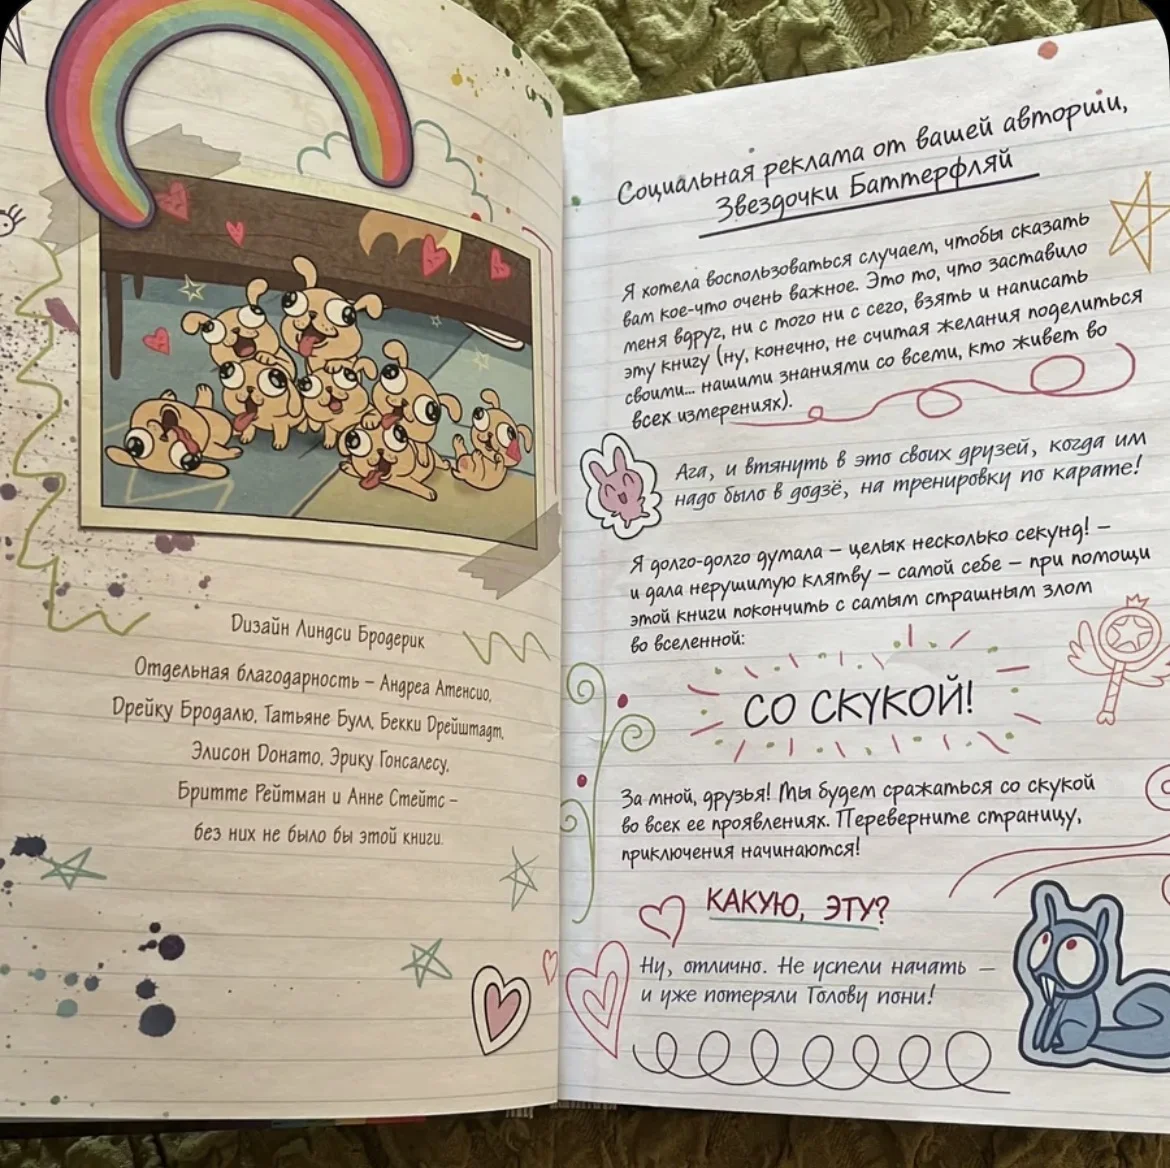 Дизайн Линдси Бродерик
Отдельная благодарность – Андреа Атенсио,
Дрейку Бродалю, Татьяне Булл, Бекки Дрейштадт,
Элисон Донато, Эрику Гонсалесу,
Бритте Рейтман и Анне Стейтс –
без них не было бы этой книги.
Социальная реклама от вашей авторши,
Звездочки Баттерфляй
Я хотела воспользоваться случаем, чтобы сказать
вам кое-что очень важное. Это то, что заставило
меня вдруг, ни с того ни с сего, взять и написать
эту книгу (ну, конечно, не считая желания поделиться
своими... нашими знаниями со всеми, кто живет во
всех измерениях).
Ага, и втянуть в это своих друзей, когда им
надо было в додзё, на тренировку по карате!
Я долго-долго думала – целых несколько секунд! –
и дала нерушимую клятву – самой себе – при помощи
этой книги покончить с самым страшным злом
во вселенной:
СО СКУКОЙ!
За мной, друзья! Мы будем сражаться со скукой
во всех ее проявлениях. Переверните страницу,
приключения начинаются!
КАКУЮ, ЭТУ?
Ну, отлично. Не успели начать –
и уже потеряли Голову пони!